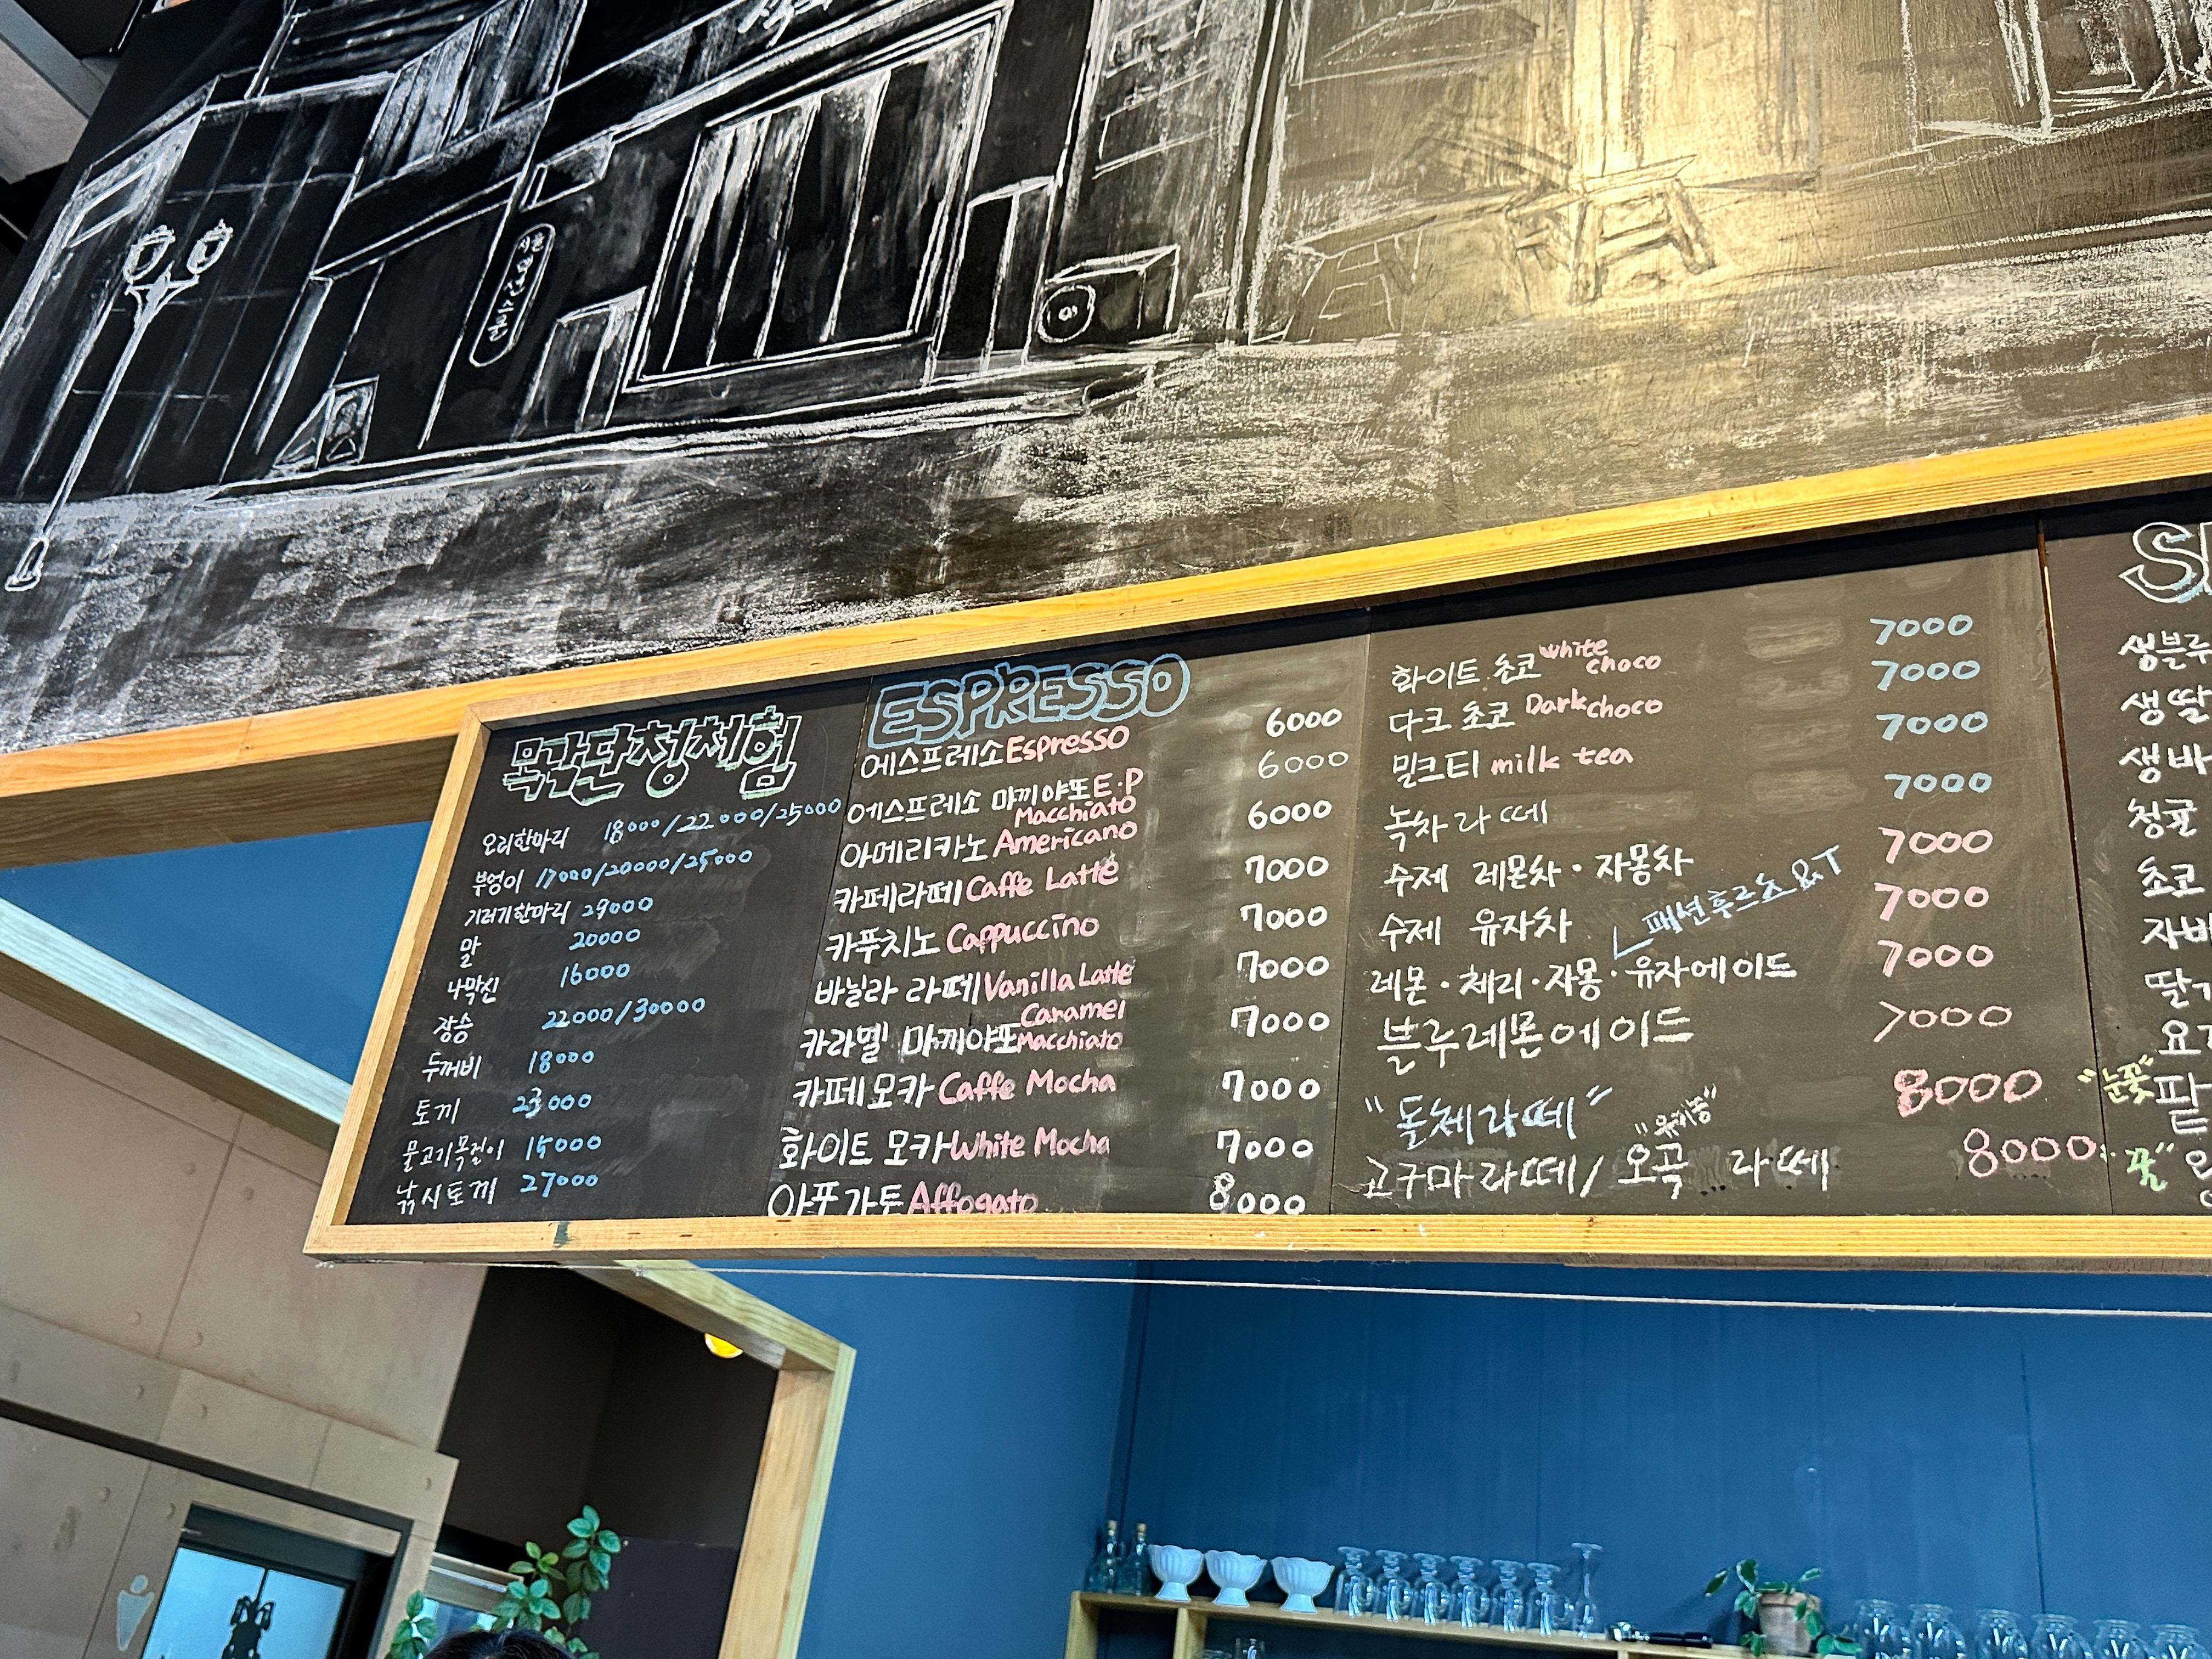 목각단청체험
오리한마리 18000/22000/25000
부엉이 17000/20000/25000
기러기한마리 29000
말 20000
나막신 16000
장승 22000/30000
두꺼비 18000
토끼 23000
물고기목걸이 15000
낚시토끼 27000
ESPRESSO
에스프레소 Espresso 6000
에스프레소 마끼야또 E.P Macchiato 6000
아메리카노 Americano 6000
카페라떼 Caffe Latte 7000
카푸치노 Cappuccino 7000
바닐라 라떼 Vanilla Latte 7000
카라멜 마끼야또 Caramel Macchiato 7000
카페모카 Caffe Mocha 7000
화이트 모카 White Mocha 7000
아포가토 Affogato 8000
화이트 초코 white choco 7000
다크 초코 Dark choco 7000
밀크티 milk tea 7000
녹차라떼 7000
수제 레몬차·자몽차 7000
수제 유자차 7000
패션후르츠 &T
레몬·체리·자몽·유자에이드 7000
블루레몬에이드 7000
"돌체라떼" 8000
고구마라떼/ 오곡 라떼 8000
생블루
생딸
생바
청귤
초코
자바
딸기
요거
"눈꽃" 팥